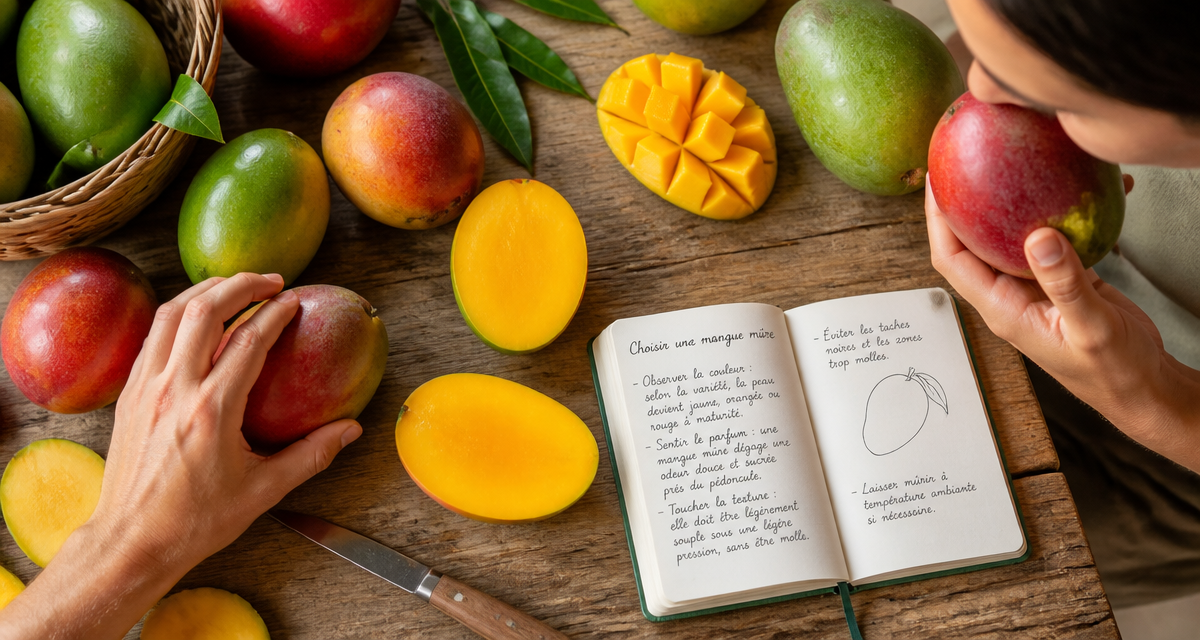 Choisir una mangue mûre
- Observer la couleur :
selon la variété, la peau
devient jaune, orangée ou
rouge à maturité.
- Sentir le parfum : une
mangue mûre dégage une
odeur douce et sucrée
près du pédoncule.
- Toucher la texture :
elle doit être légèrement
souple sous une légère
pression, sans être molle.
- Éviter les taches
noires et les zones
trop molles.
- Laisser mûrir à
température ambiante
si nécessaire.